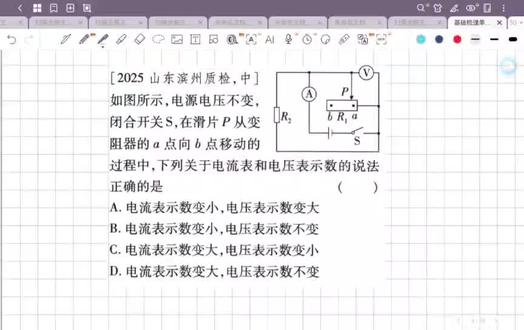 [2025 山东滨州质检,中]
如图所示,电源电压不变,
闭合开关S,在滑片 P 从变
阻器的 a 点向 b 点移动的
过程中,下列关于电流表和电压表示数的说法
正确的是 ( )
A. 电流表示数变小,电压表示数变大
B. 电流表示数变小,电压表示数不变
C. 电流表示数变大,电压表示数变小
D. 电流表示数变大,电压表示数不变
V
A
P
R₂
b R₁ a
S